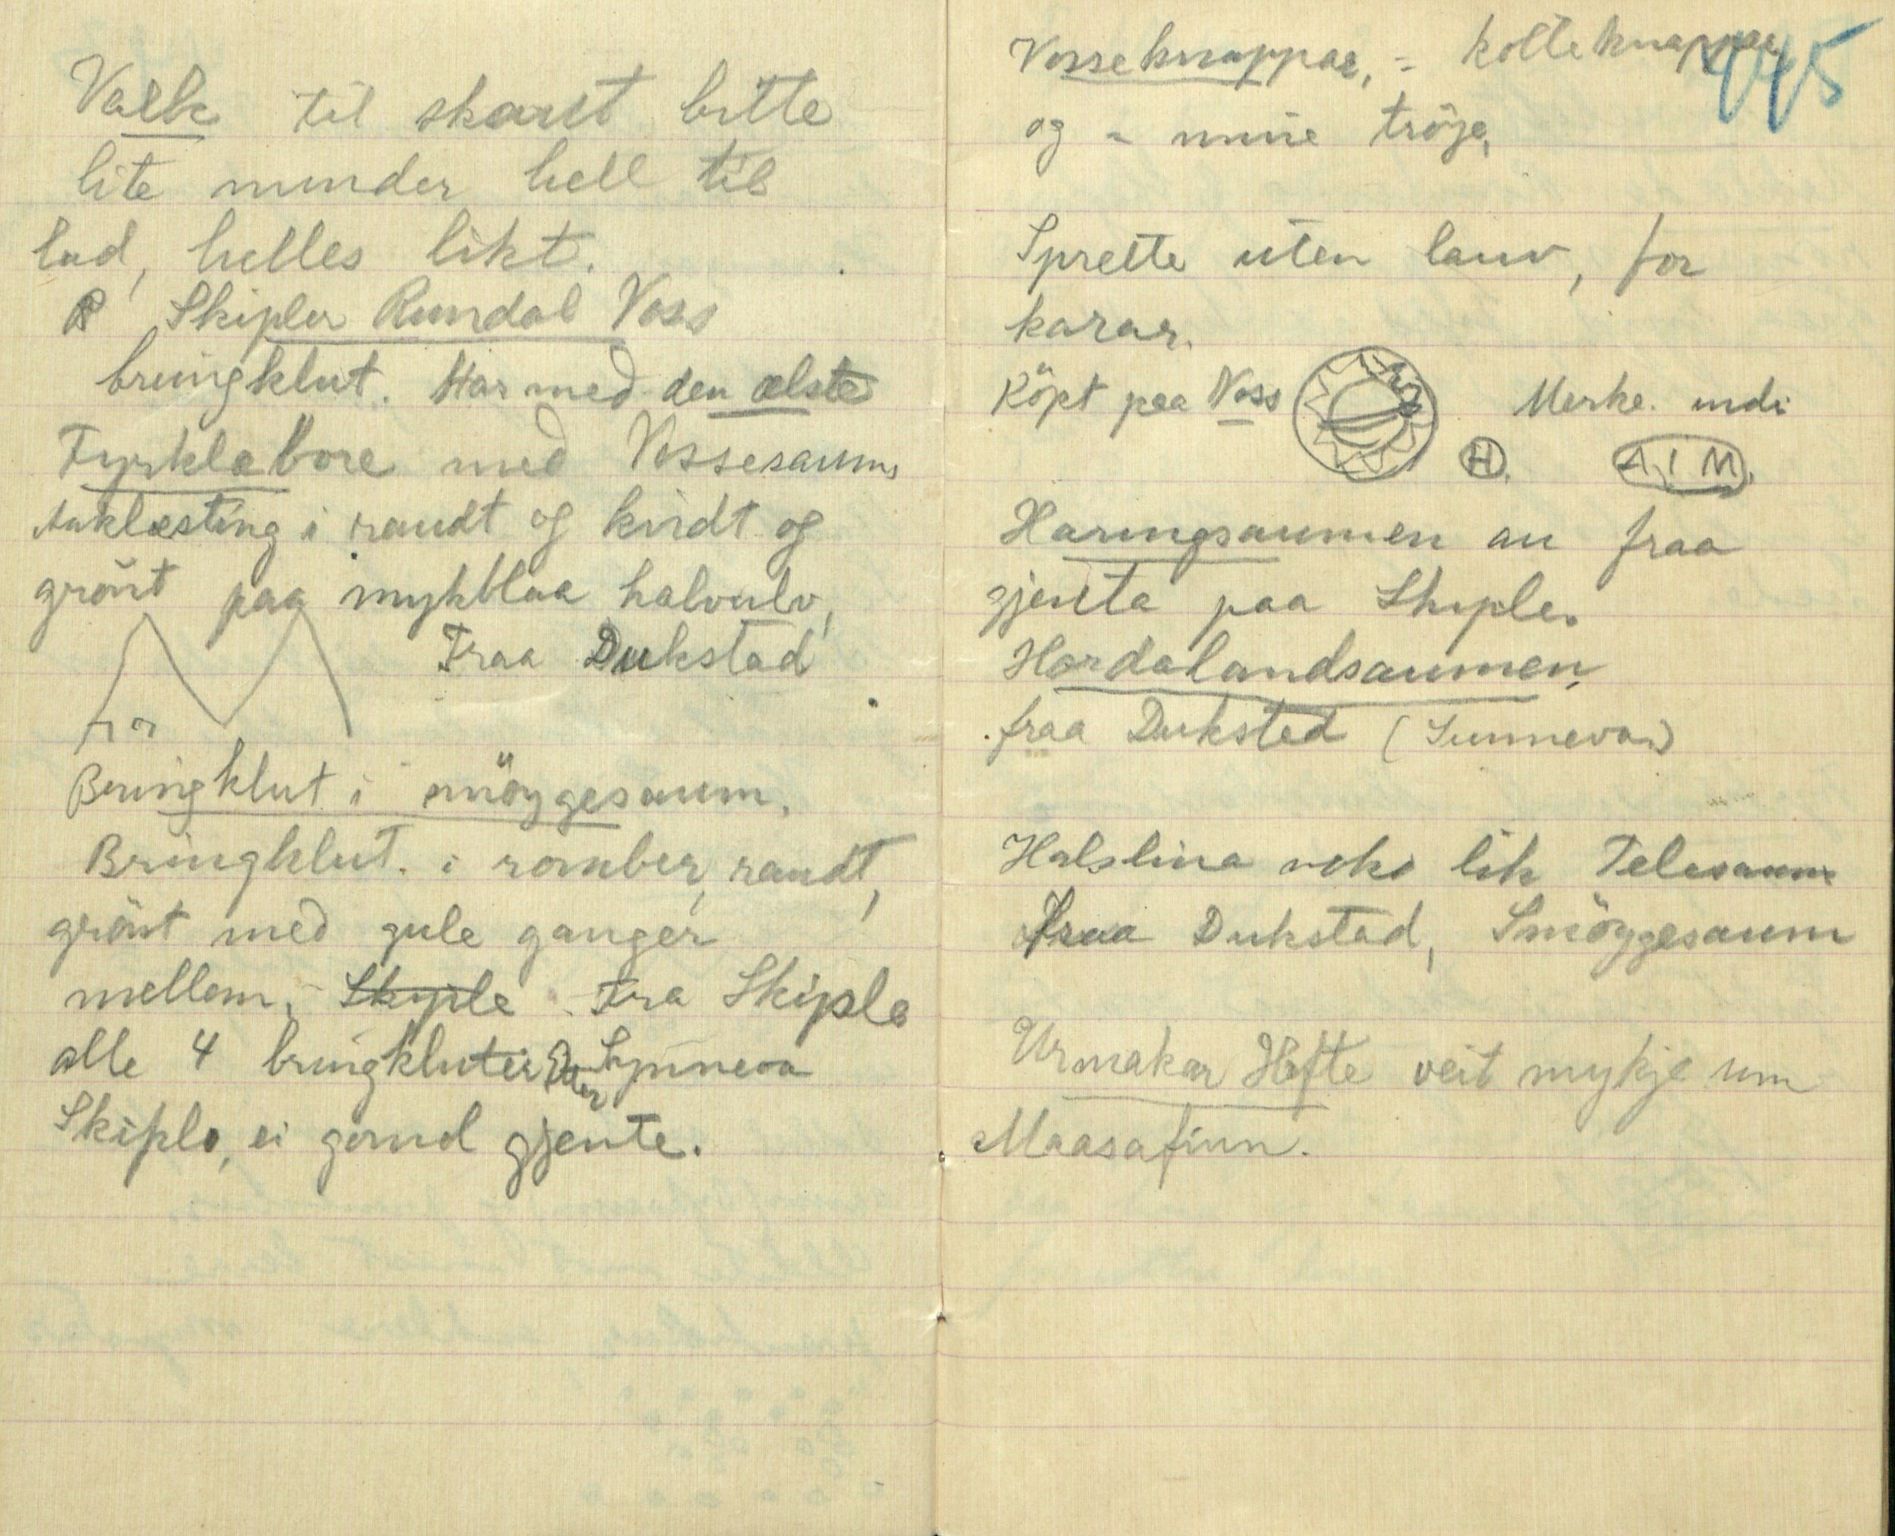 Valk til skaut bitte
lite minder hell til
lad, helles likt.
Skiple Rundal Voss
bringklut. Har med den ælste
Fyrklæbore med Vossesaum,
Aaklæsting i raudt og kvidt og
grönt paa mykblaa halvulv,
Fraa Dukstad
for
Bringklut i smöyggesaum.
Bringklut. i romber, raudt,
grönt med gule ganger
mellem. Skiple Fra Skiple
alle 4 bringkluter Synneva
Skiple, ei gomol gjente.
Vosseknappar, = kolteknappar
445
og - mine tröje,
Sprette uten lauv, for
karar.
Köpt paa Voss Merke. indi
H. A I M.
Haringsaumen au fraa
gjenta paa Skiple.
Hordalandsaumen,
fraa Dukstad (Sunneva)
Halslina noko lik Telesaum
Fraa Dukstad, Smöyggesaum
Urmakar Hefte veit mykje um
Maasafinn.